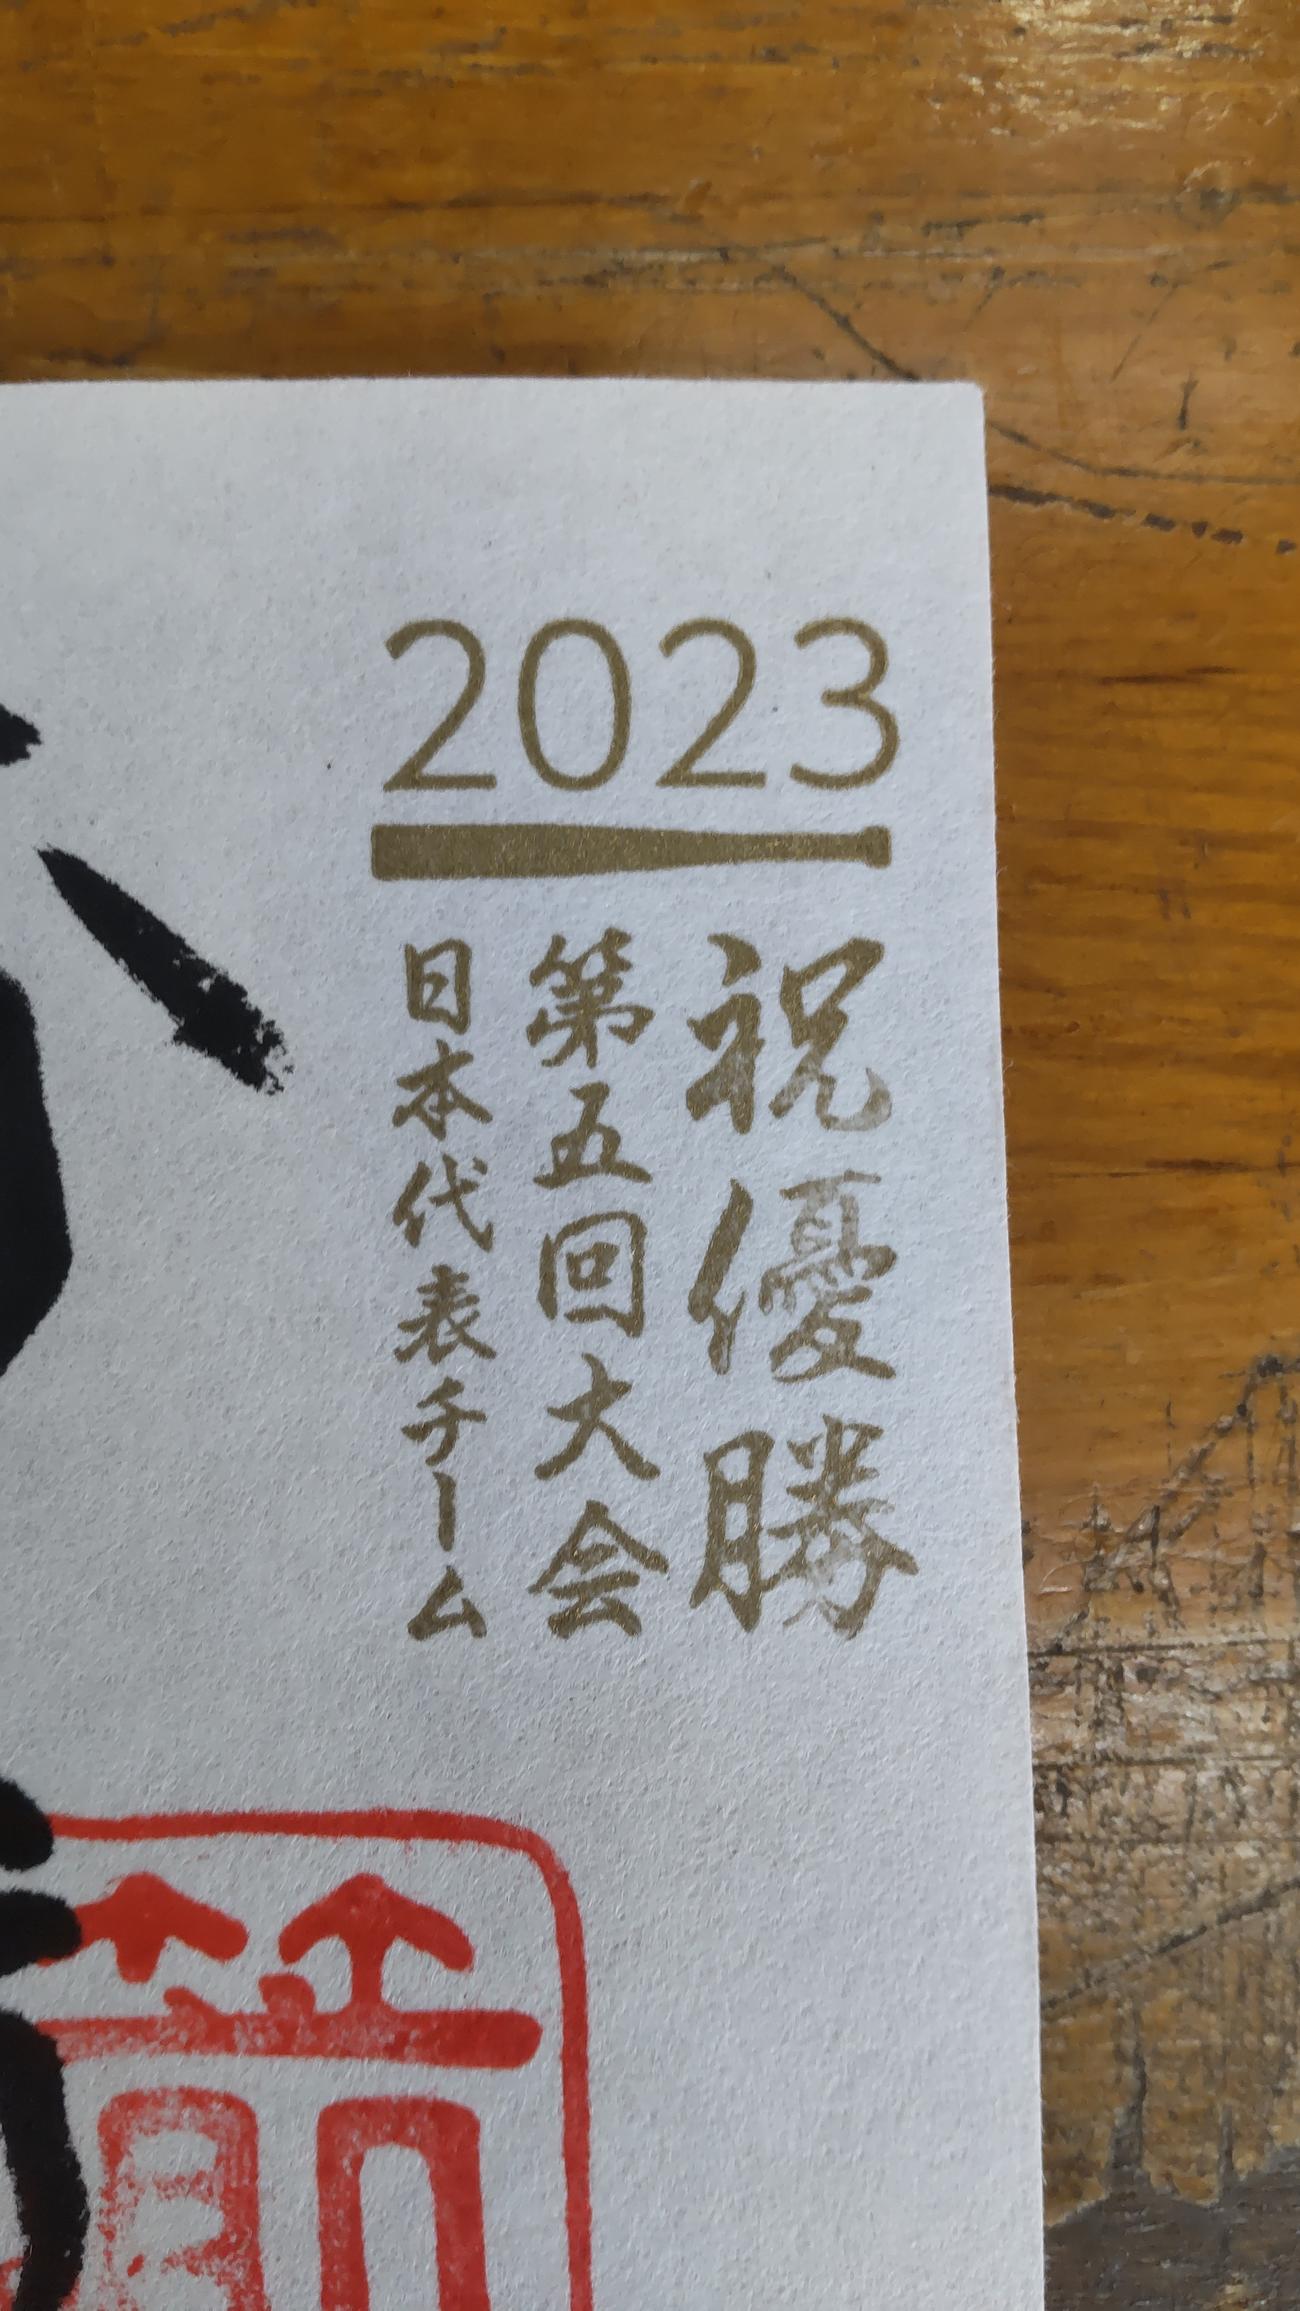 2023
祝優勝
第五回大会
日本代表チーム